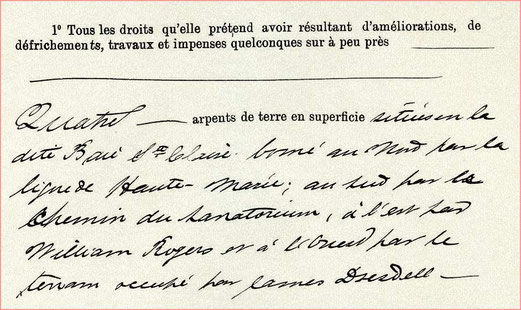 1° Tous les droits qu'elle prétend avoir résultant d'améliorations, de
défrichements, travaux et impenses quelconques sur à peu près
Quatre — arpents de terre en superficie situés en la
dite Baie Ste Claire. borné au Nord par la
ligne de Haute-Marée; au sud par le
Chemin du Sanatorium, à l'est par
William Rogers et à l'Ouest par le
terrain occupé par James Dresdell —